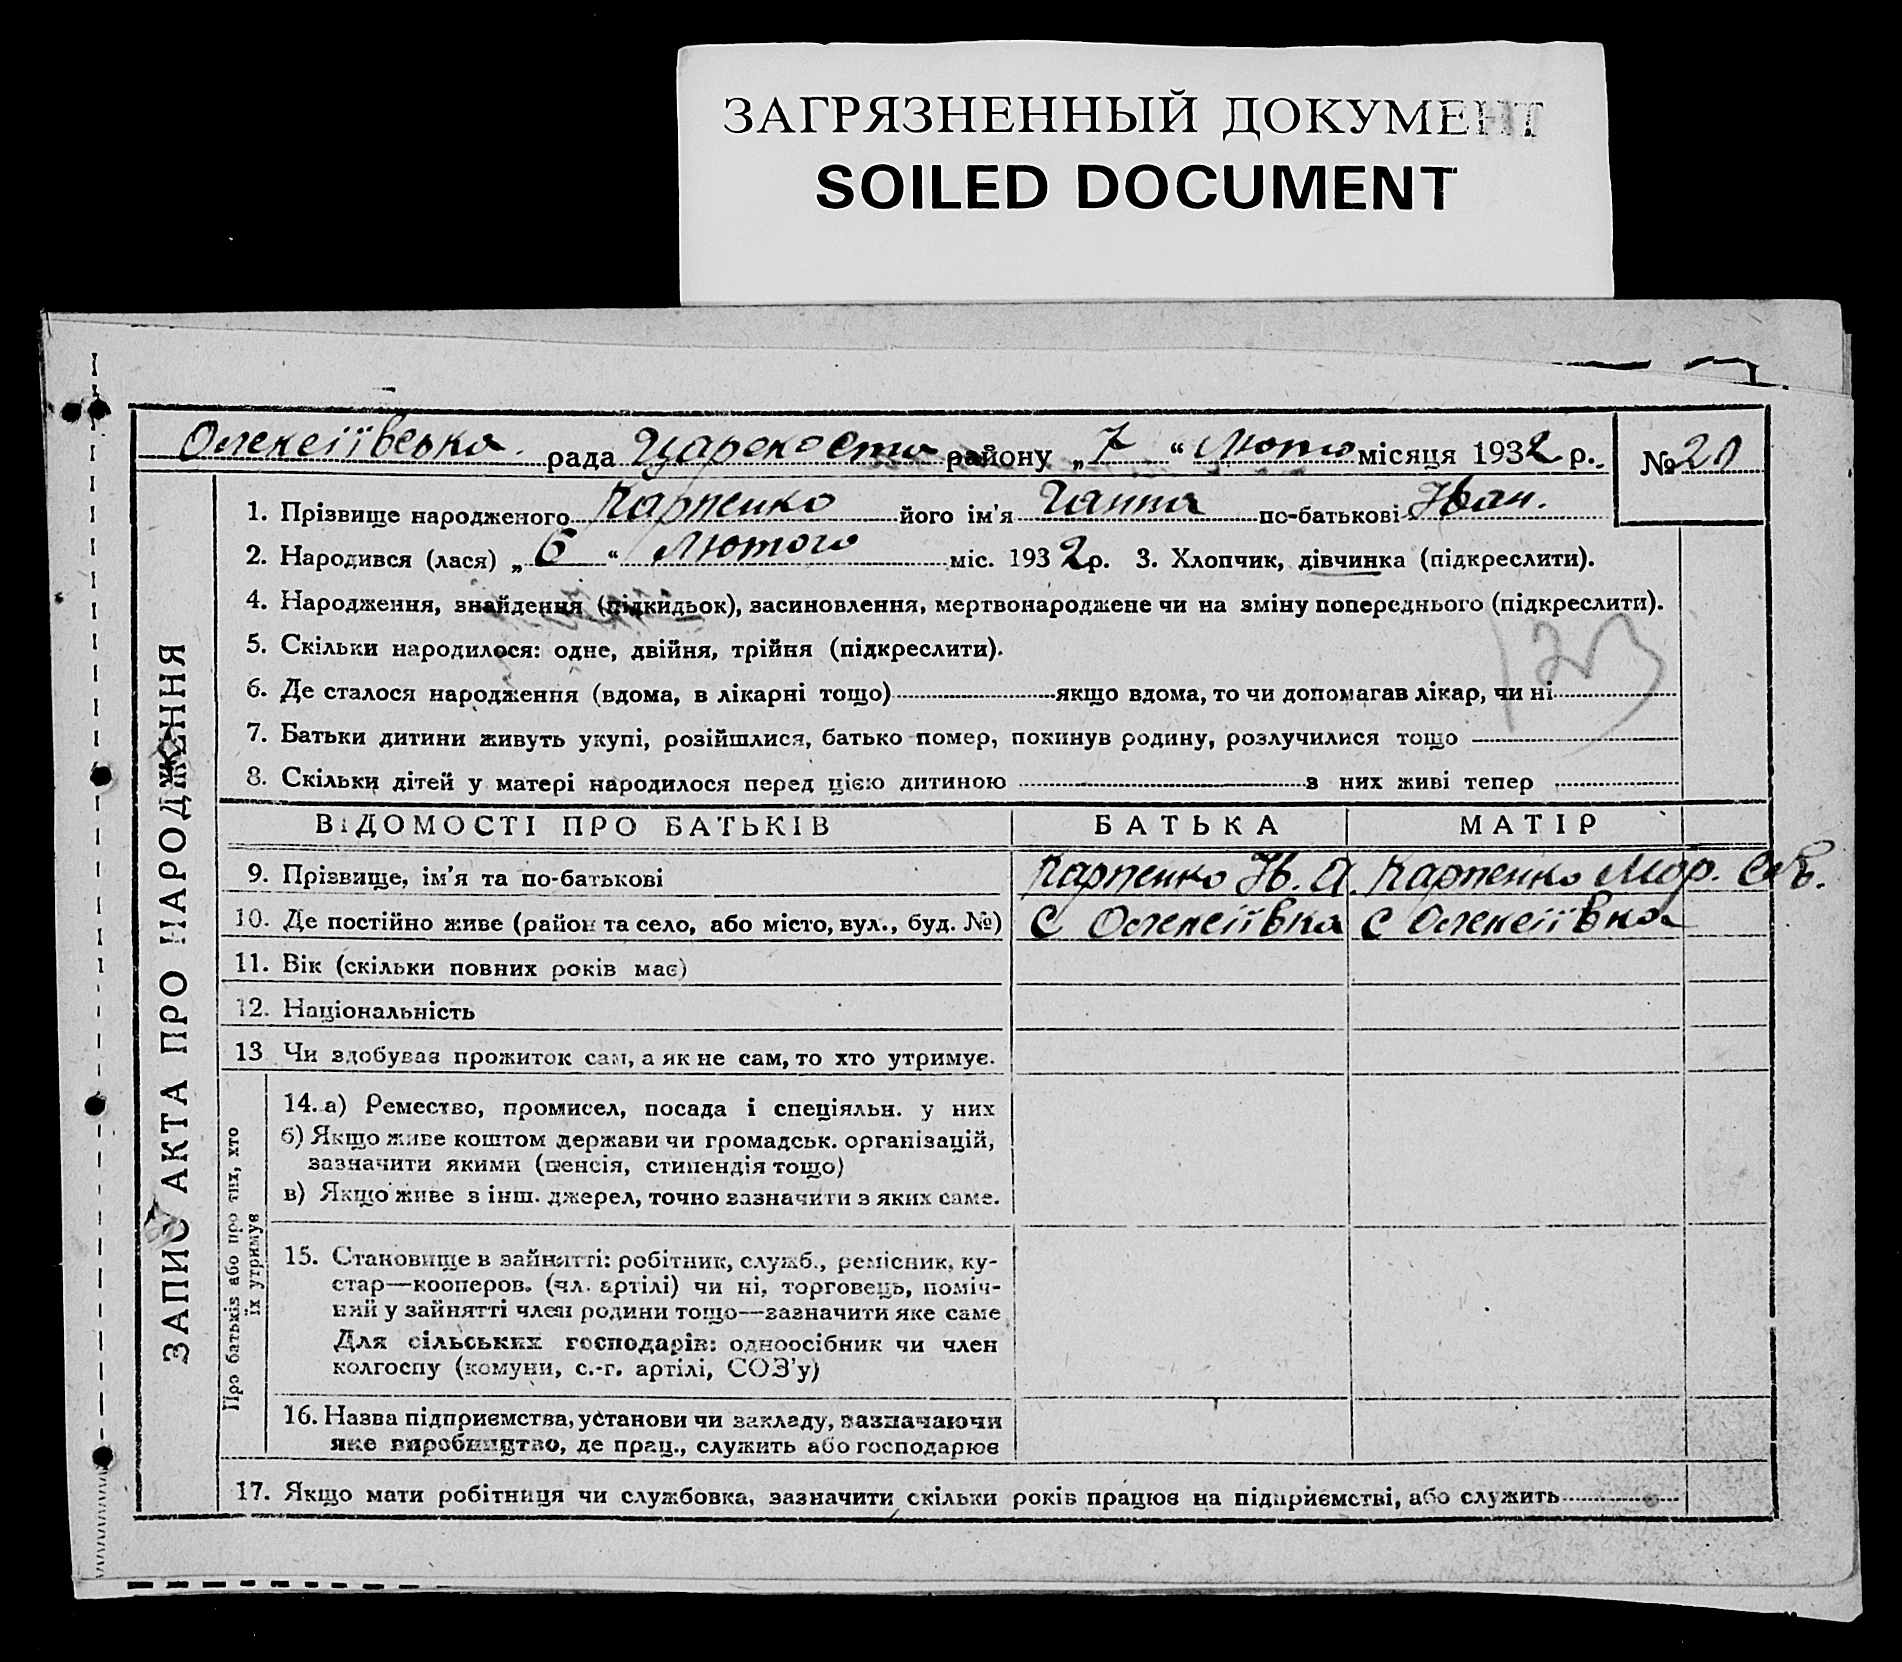 ЗАГРЯЗНЕННЫЙ ДОКУМЕНТ
SOILED DOCUMENT
Олексіївська рада Царекоста району „7“ Люто місяця 1932 р. № 20
ЗАПИС АКТА ПРО НАРОДЖЕННЯ
1. Прізвище народженого Карпенко його ім'я Ганна по-батькові Іван.
2. Народився (лася) „6“ Лютого міс. 1932 р. 3. Хлопчик, дівчинка (підкреслити).
4. Народження, знайдення (підкидьок), засиновлення, мертвонароджене чи на зміну попереднього (підкреслити).
5. Скільки народилося: одне, двійня, трійня (підкреслити).
123
6. Де сталося народження (вдома, в лікарні тощо) якщо вдома, то чи допомагав лікар, чи ні
7. Батьки дитини живуть укупі, розійшлися, батько помер, покинув родину, розлучилися тощо
8. Скільки дітей у матері народилося перед цією дитиною з них живі тепер
ВІДОМОСТІ ПРО БАТЬКІВ БАТЬКА МАТІР
9. Прізвище, ім'я та по-батькові Карпенко Ів. А. Карпенко Мар.
10. Де постійно живе (район та село, або місто, вул., буд. №) С Олексіївка С Олексіївка
11. Вік (скільки повних років має)
12. Національність
13 Чи здобував прожиток сам, а як не сам, то хто утримує.
Про батьків або про тих, хто
їх утримує
14. а) Ремество, промисел, посада і спеціяльн. у них
б) Якщо живе коштом держави чи громадськ. організацій,
зазначити якими (пенсія, стипендія тощо)
в) Якщо живе з інш. джерел, точно зазначити з яких саме.
15. Становище в зайнятті: робітник, служб., ремісник, ку-
стар—кооперов. (чл. артілі) чи ні, торговець, поміч-
ний у зайнятті член родини тощо—зазначити яке саме
Для сільських господарів: одноосібник чи член
колгоспу (комуни, с.-г. артілі, СОЗ'у)
16. Назва підприємства, установи чи закладу, зазначаючи
яке виробництво, де прац., служить або господарює
17. Якщо мати робітниця чи службовка, зазначити скільки років працює на підприємстві, або служить